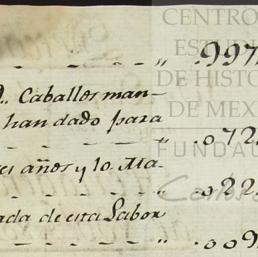 CENTRO
ESTUDI
DE HISTO
DE MEX
FUNDA
997
Caballos man-
han dado para
072
años y lo
022
ada de esta Labor
009